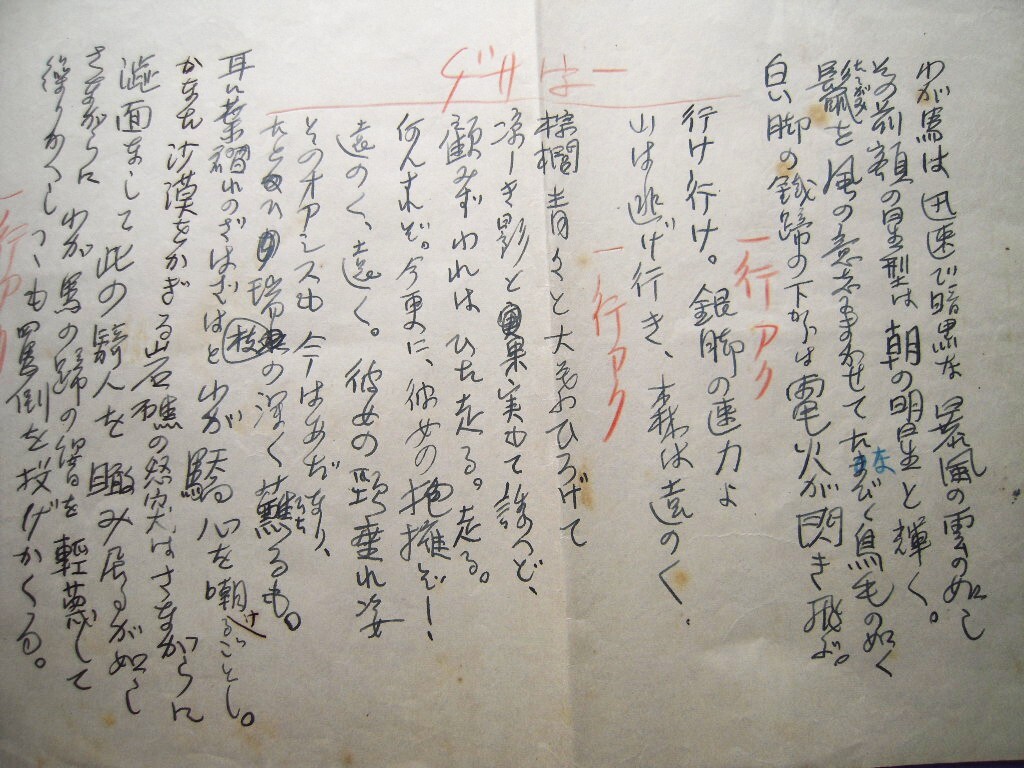 わが馬は迅速で暗黒な暴風の雲の如し
その前額の星型は朝の明星と輝く。
鬣を風の意志にまかせてたなびく鳥毛の如く
白い脚の鉄蹄の下からは電火が閃き飛ぶ。
一行アク
行け行け。銀脚の速力よ
山は逃げ行き、森は遠のく、
一行アク
一字サゲ
棕櫚青々と大きおひろげて
凉しき影と果実もて誘へど、
顧みずわれはひた走る。走る。
何んすれぞ。今更に、彼女の抱擁ぞ!、
遠のく、遠く。彼女の頭垂れ姿
そのオアシスも今はあぢきなし、
たとひ瑞枝の深く蘸るも。
耳に葉褶れのざはざはとわが驕心を嘲けるごとし。
かなた沙漠をかぎる岩礁の怒突はさながらに
澁面をして此の騎人を瞰み居るが如し
さながらに わが馬の蹄の響を軽蔑して
繰りかへしつゝも罵倒を投げかくる。
一行アク